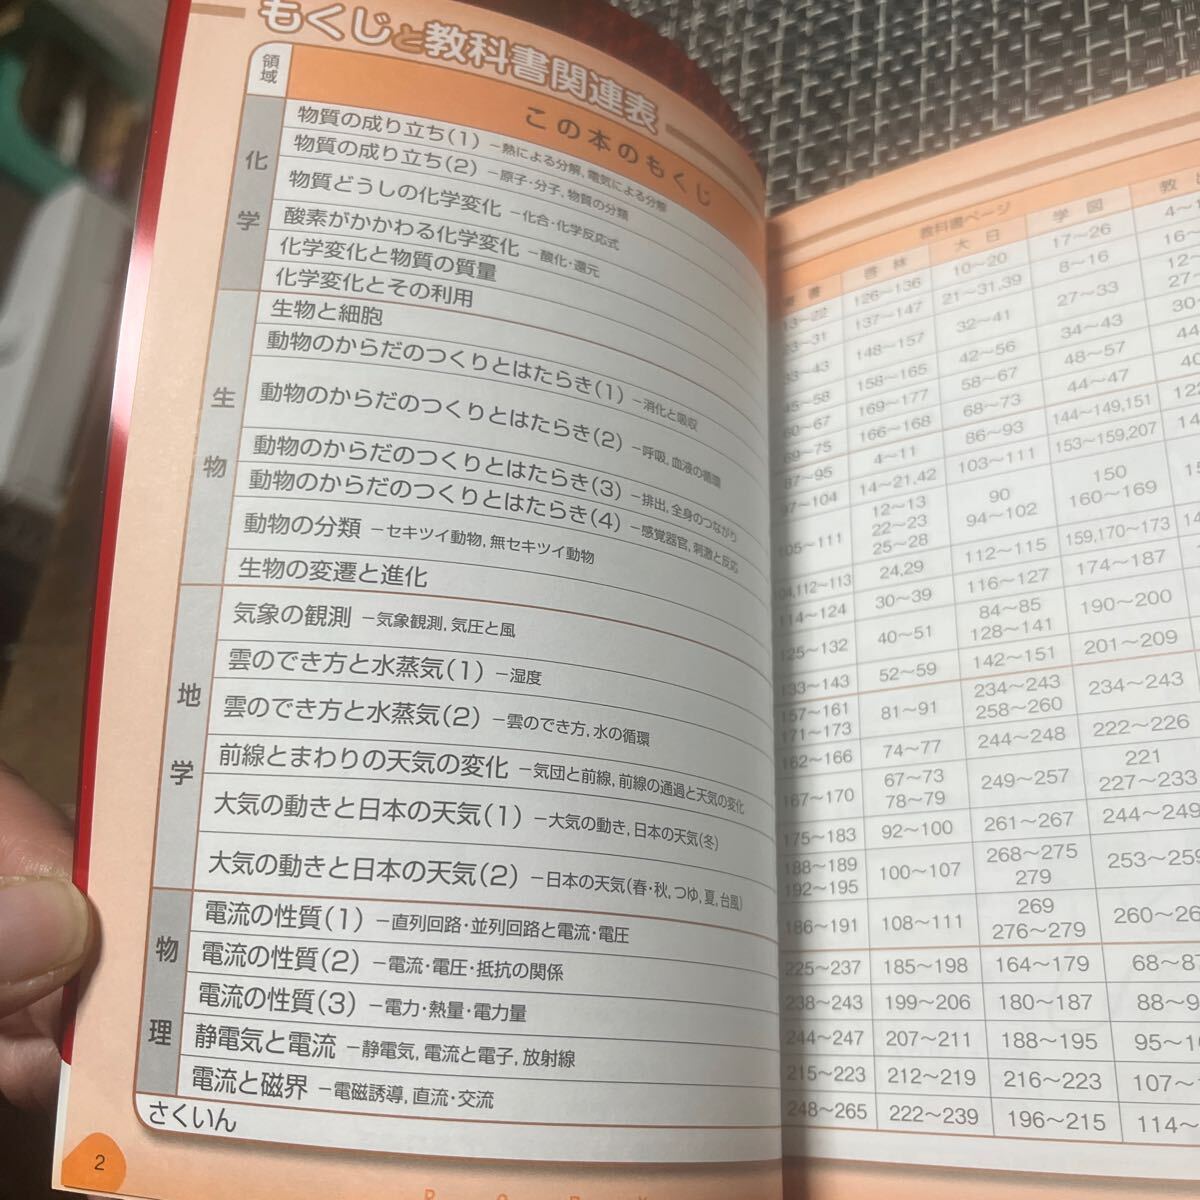 もくじと教科書関連表
領域
この本のもくじ
化学
物質の成り立ち(1) －熱による分解、電気による分解
物質の成り立ち(2) －原子・分子、物質の分類
物質どうしの化学変化 －化合・化学反応式
酸素がかかわる化学変化 －酸化・還元
化学変化と物質の質量
化学変化とその利用
生物
生物と細胞
動物のからだのつくりとはたらき(1) －消化と吸収
動物のからだのつくりとはたらき(2) －呼吸、血液の循環
動物のからだのつくりとはたらき(3) －排出、全身のつながり
動物のからだのつくりとはたらき(4) －感覚器官、刺激と反応
動物の分類 －セキツイ動物、無セキツイ動物
生物の変遷と進化
地学
気象の観測 －気象観測、気圧と風
雲のでき方と水蒸気(1) －湿度
雲のでき方と水蒸気(2) －雲のでき方、水の循環
前線とまわりの天気の変化 －気団と前線、前線の通過と天気の変化
大気の動きと日本の天気(1) －大気の動き、日本の天気(冬)
大気の動きと日本の天気(2) －日本の天気(春・秋、つゆ、夏、台風)
物理
電流の性質(1) －直列回路・並列回路と電流・電圧
電流の性質(2) －電流・電圧・抵抗の関係
電流の性質(3) －電力・熱量・電力量
静電気と電流 －静電気、電流と電子、放射線
電流と磁界 －電磁誘導、直流・交流
さくいん
2
教科書ページ
啓林 大日 学図 教出
126～136 10～20 17～26
137～147 21～31,39 8～16
148～157 32～41 27～33
158～165 42～56 34～43
60～67 169～177 58～67 48～57
69～75 166～168 68～73 44～47
87～95 4～11 86～93 144～149,151
97～104 14～21,42 103～111 153～159,207
105～111 12～13 22～23 25～28 90 94～102 150 160～169
104,112～113 24,29 112～115 159,170～173
114～124 30～39 116～127 174～187
125～132 40～51 84～85 128～141 190～200
133～143 52～59 142～151 201～209
157～161 171～173 81～91 234～243 258～260 234～243
162～166 74～77 244～248 222～226
167～170 67～73 78～79 249～257 221 227～233
175～183 92～100 261～267 244～249
188～189 192～195 100～107 268～275 279
186～191 108～111 269 276～279
225～237 185～198 164～179
238～243 199～206 180～187
244～247 207～211 188～195
215～223 212～219 216～223
248～265 222～239 196～215